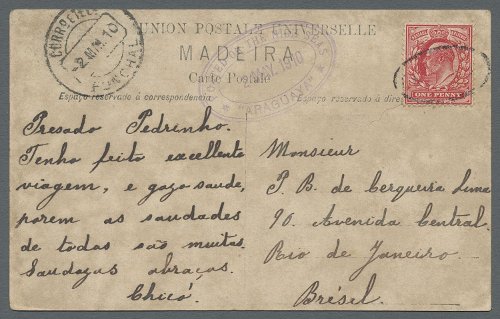 UNION POSTALE UNIVERSELLE
MADEIRA
Carte Postale
Espaço reservado á correspondencia
Espaço reservado á
FUNCHAL
2 MAI 10
1910
"ARAGUAYA"
ONE PENNY
Presado Pedrinho.
Tenho feito excellente
viagem, e gozo saude,
porem as saudades
de todas são muitas.
Saudozos abraços.
Chicó.
Monsieur
P. B. de Cerqueira Lima
90. Avenida Central.
Rio de Janeiro.
Brésil.